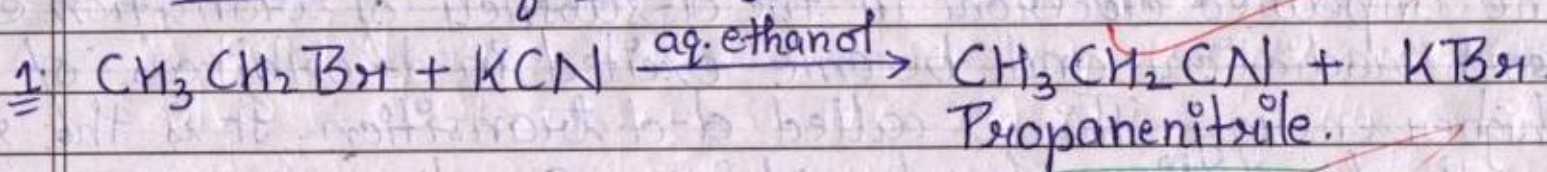 1. CH₃CH₂Br + KCN —aq. ethanol→ CH₃CH₂CN + KBr
Propanenitrile.